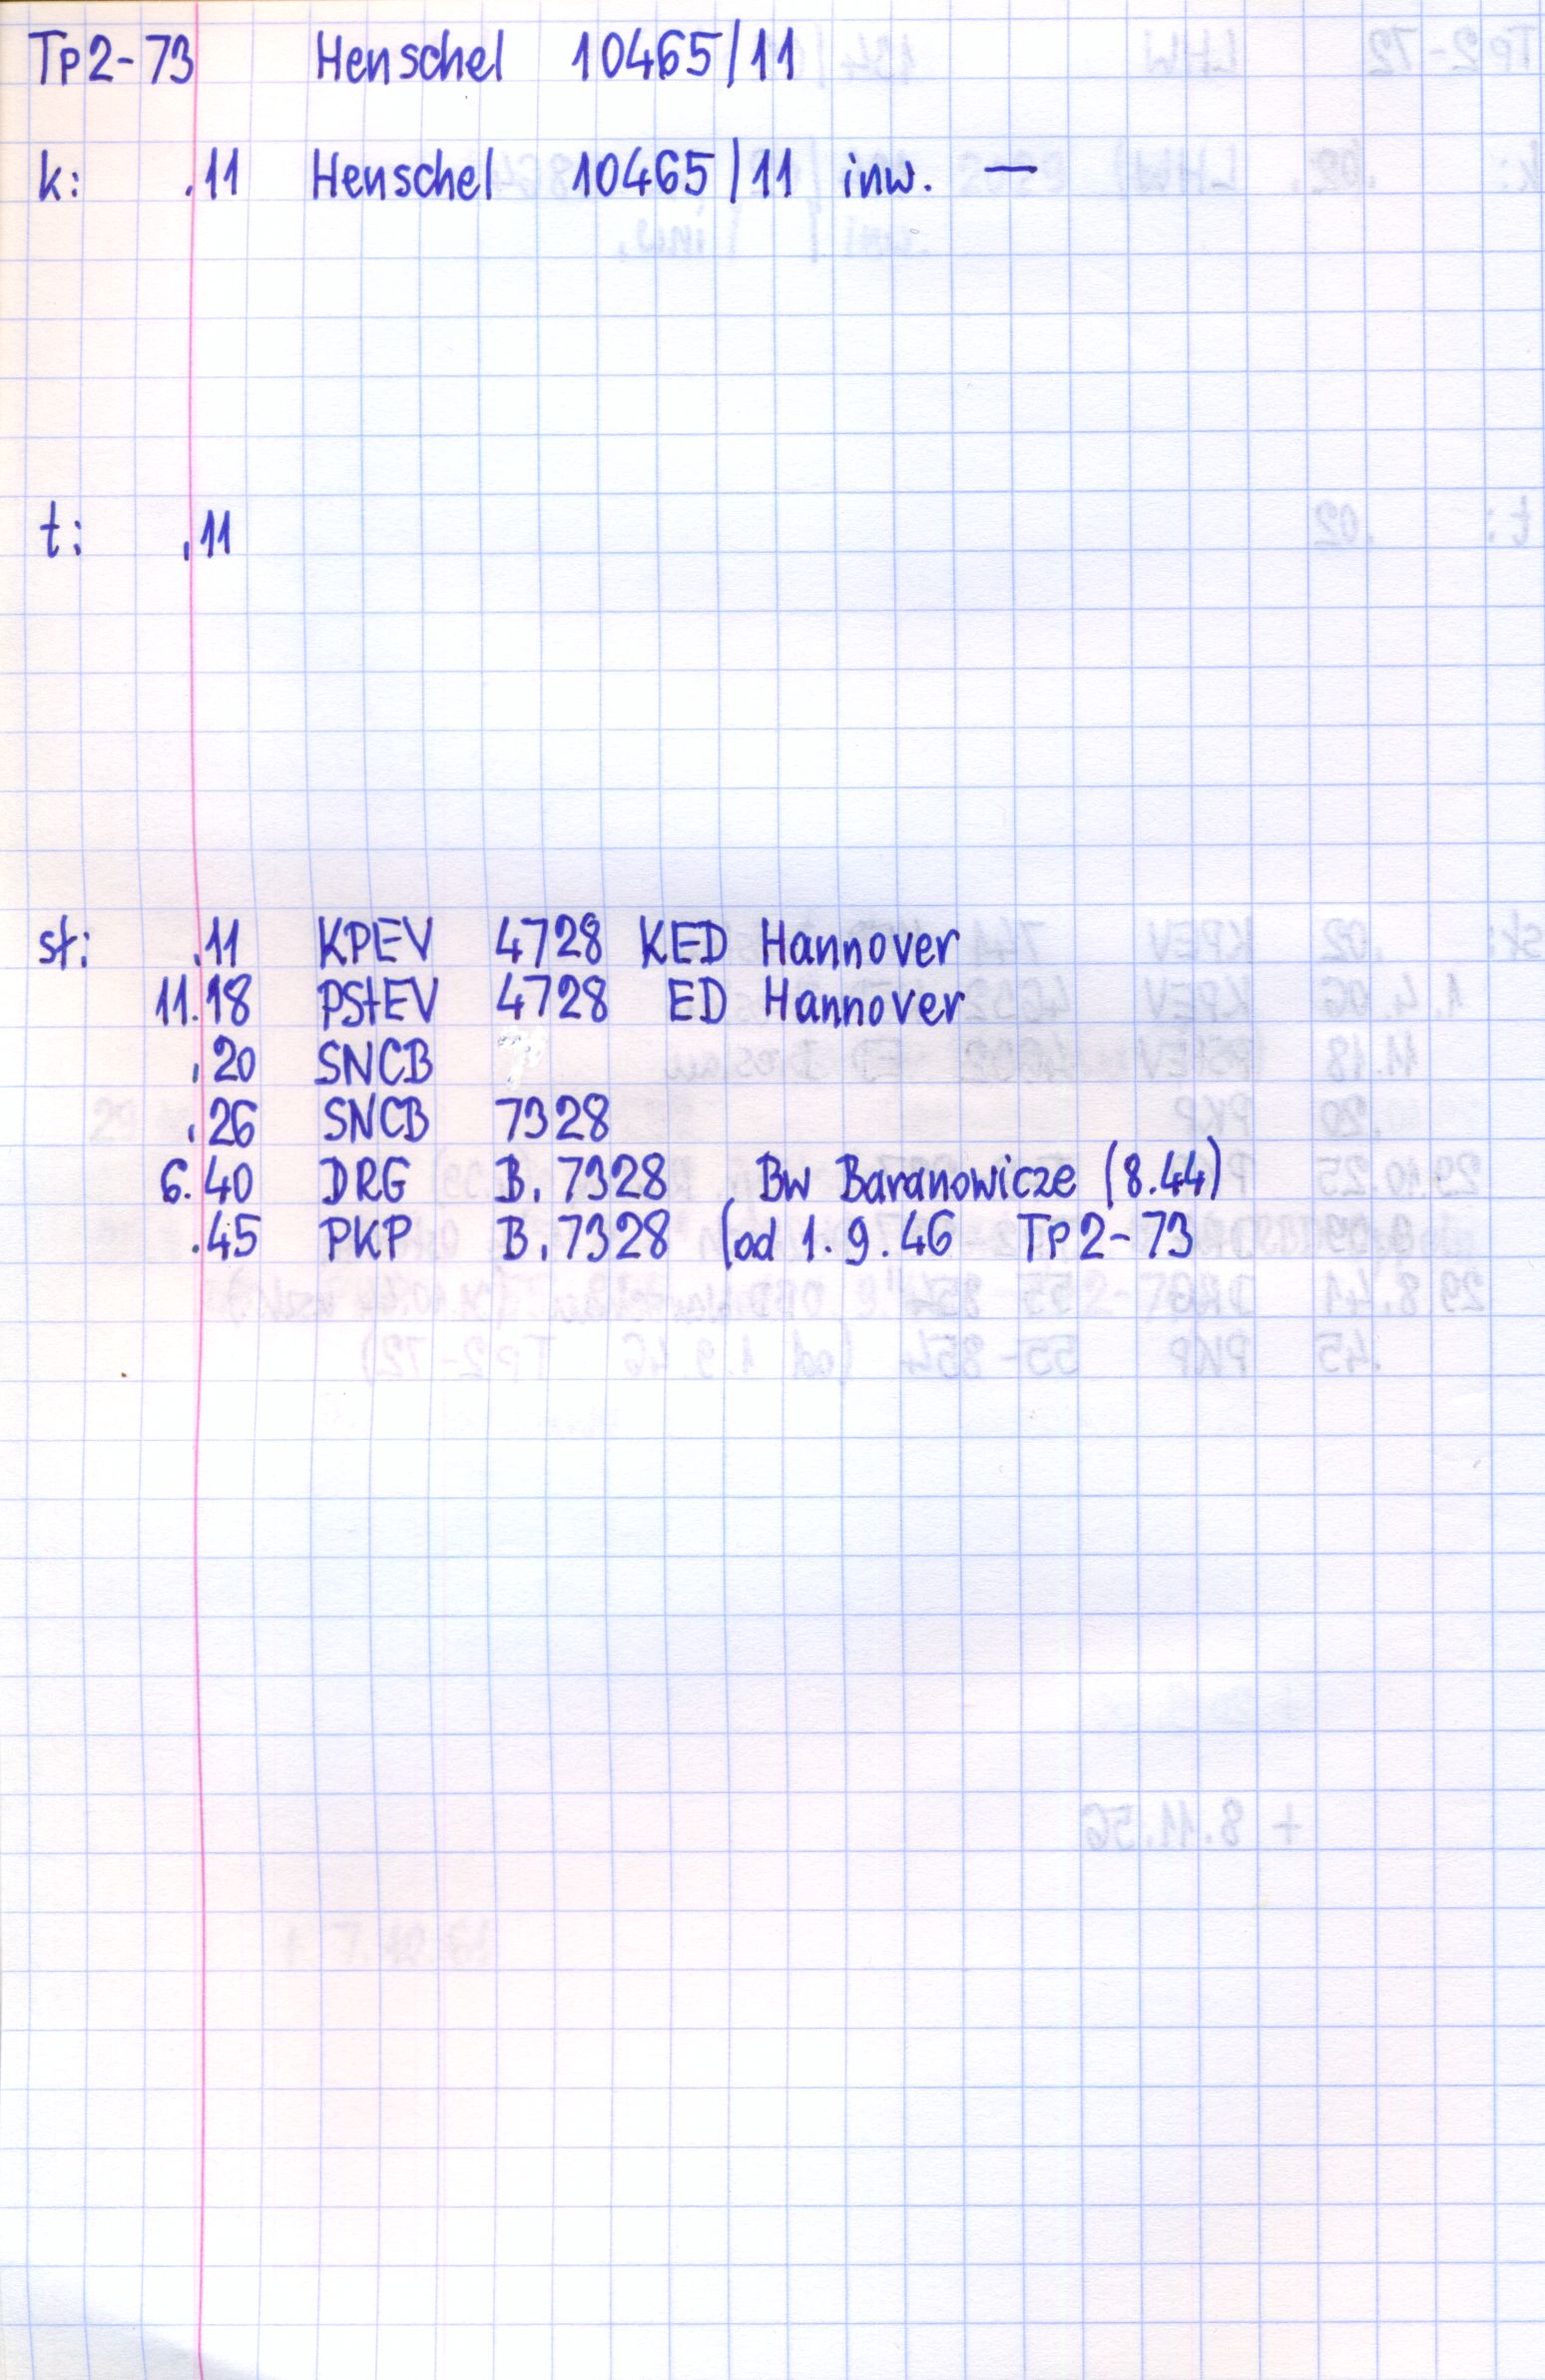 Tp2-73 Henschel 10465/11
k: .11 Henschel 10465/11 inw. —
t: .11
st: .11 KPEV 4728 KED Hannover
11.18 PStEV 4728 ED Hannover
.20 SNCB
.26 SNCB 7328
6.40 DRG B.7328, Bw Baranowicze (8.44)
.45 PKP B.7328 (od 1.9.46 Tp2-73